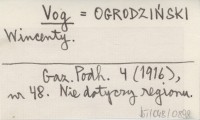 Vog = OGRODZIŃSKI
Wincenty.
Gaz. Podh. 4 (1916),
nr 48. Nie dotyczy regionu.